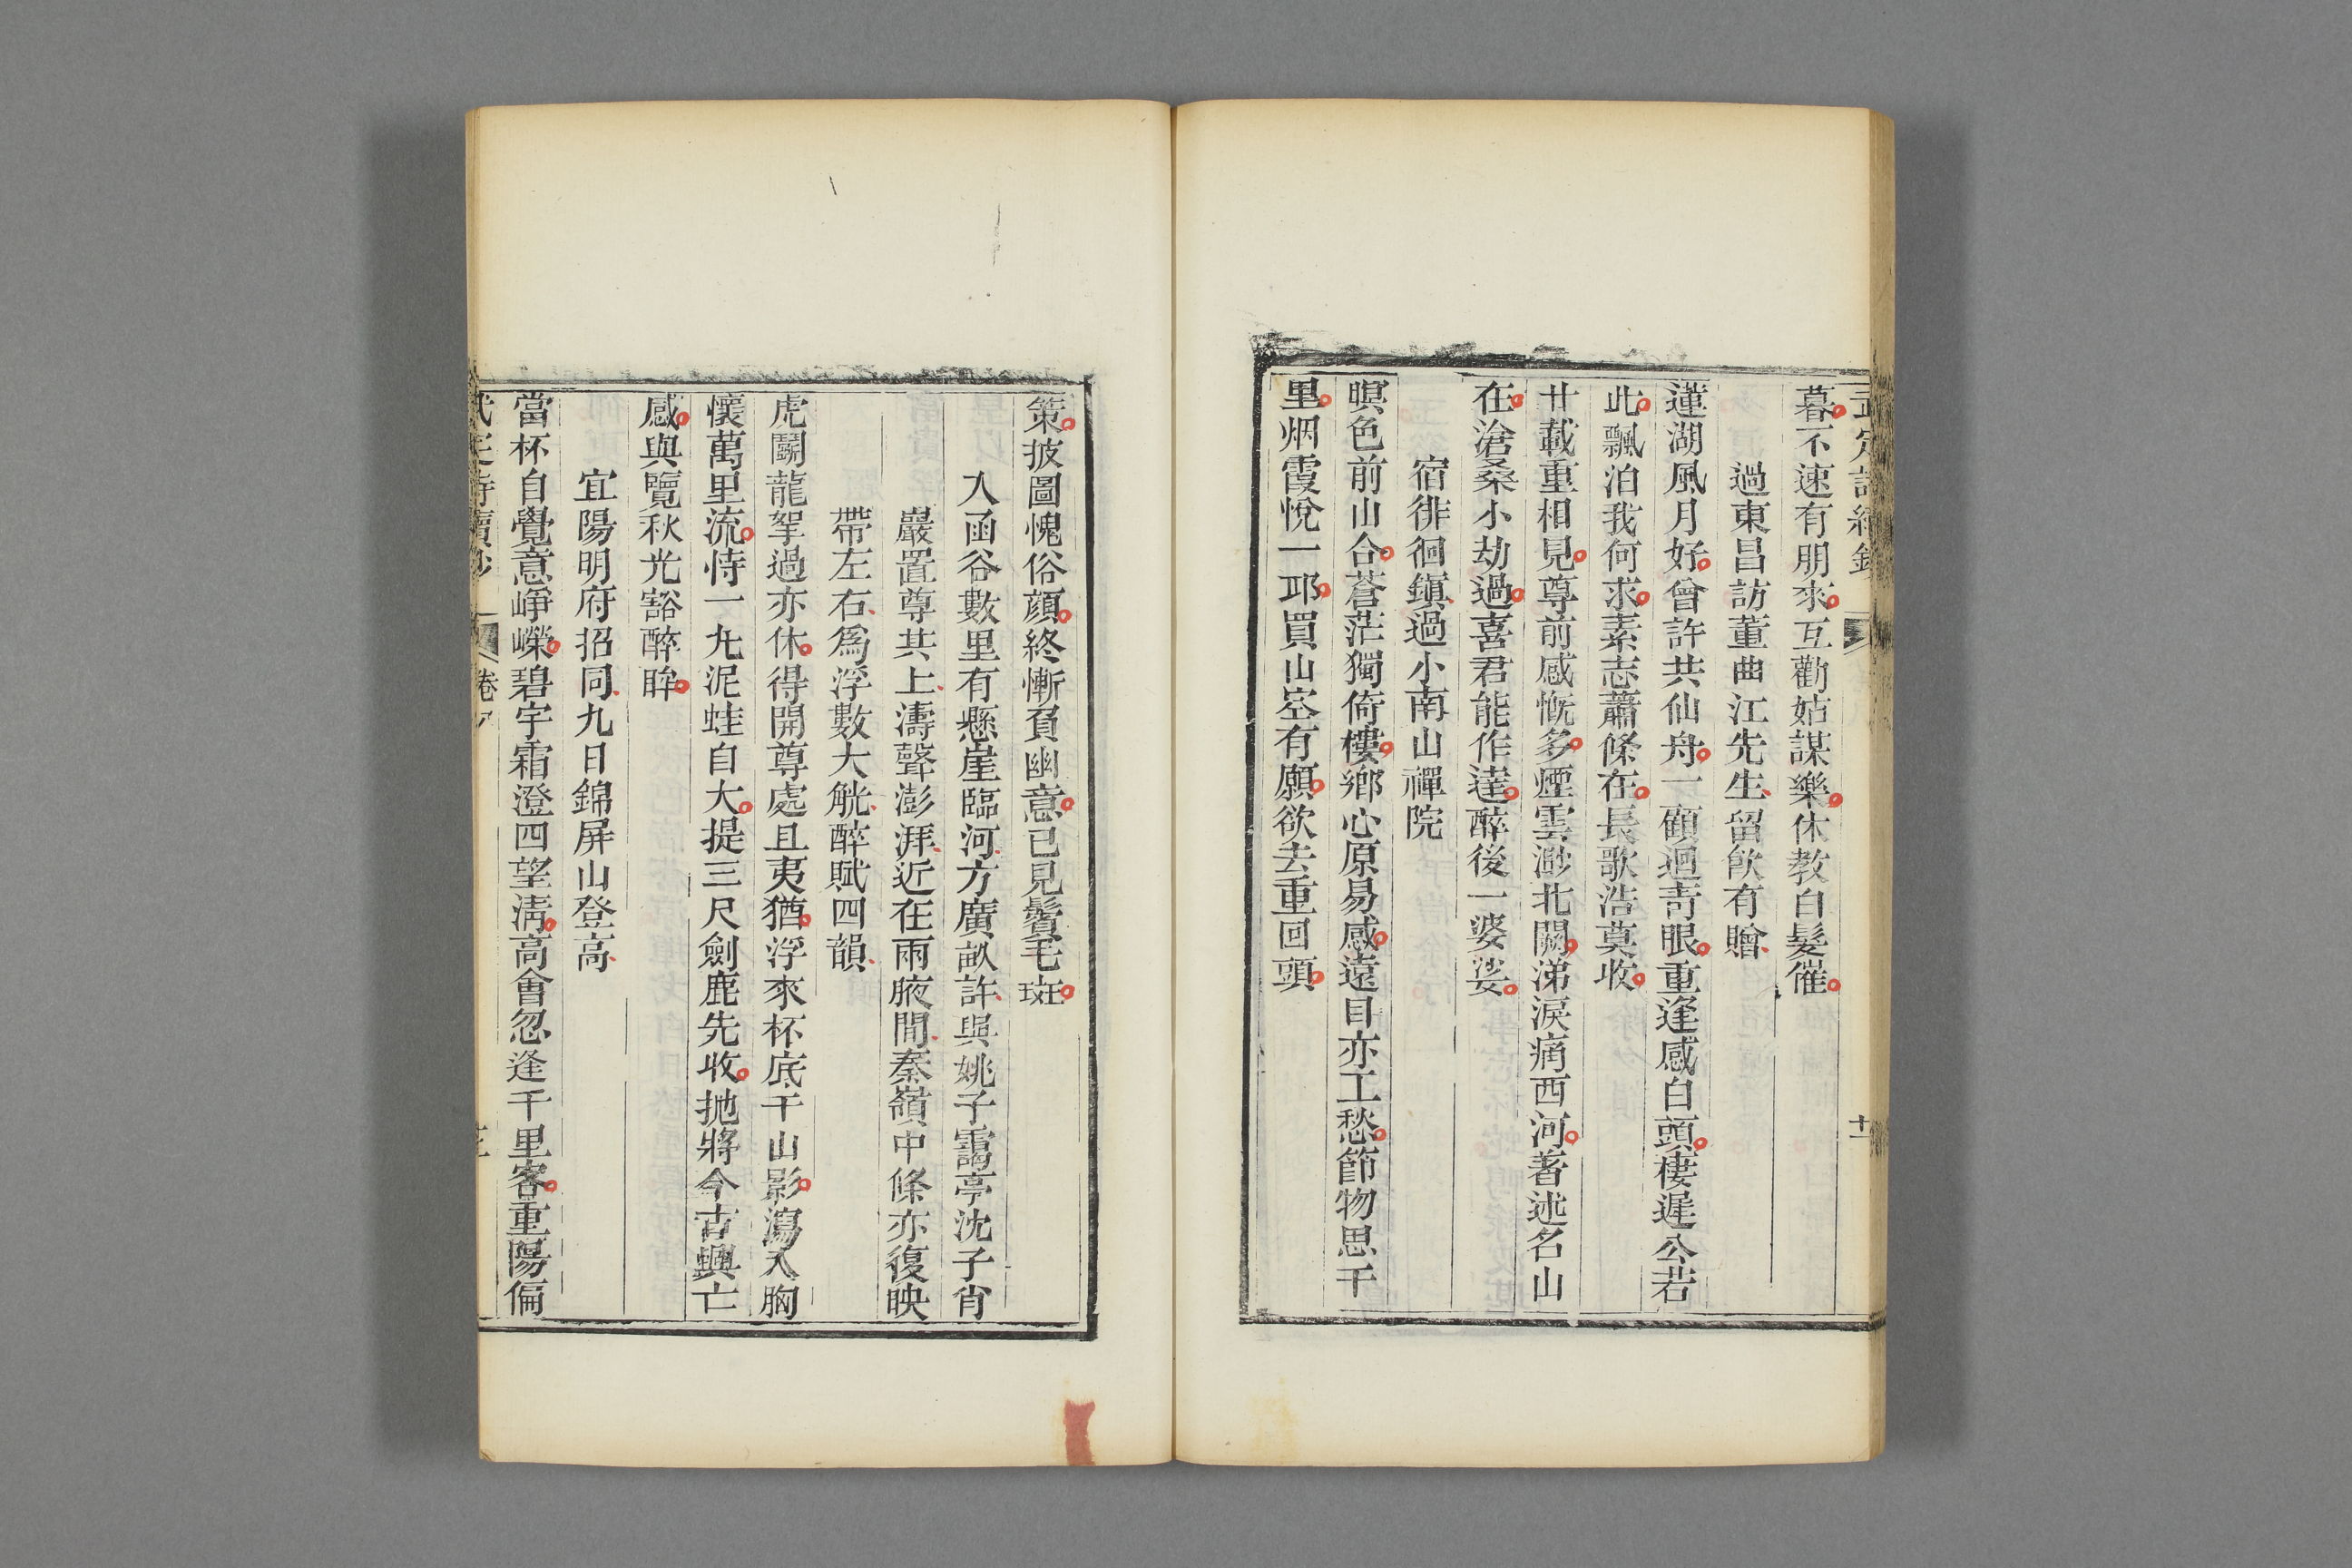 暮不速有朋來互勸姑謀樂休教白髮催
過東昌訪董曲江先生留飮有贈
蓮湖風月好曾許共仙舟一顧迴靑眼重逢感白頭棲遲公若
此飄泊我何求素志蕭條在長歌浩莫收
廿載重相見尊前感慨多煙雲渺北闕涕淚痛西河著述名山
在滄桑小劫過喜君能作達醉後一婆娑
宿徘徊鎭過小南山禪院
暝色前山合蒼茫獨倚樓鄕心原易感遠目亦工愁節物思千
里烟霞悅一邛買山空有願欲去重回頭
十二
策披圖愧俗顔終慚負幽意已見鬢毛斑
入函谷數里有懸崖臨河方廣畝許與姚子靄亭沈子肖
巖置尊共上濤聲澎湃近在雨腋間秦嶺中條亦復映
帶左右爲浮數大觥醉賦四韻
虎鬭龍拏過亦休得開尊處且夷猶浮來杯底千山影瀉入胸
懷萬里流恃一丸泥蛙自大提三尺劍鹿先收抛將今古興亡
感與覽秋光豁醉眸
宜陽明府招同九日錦屏山登高
當杯自覺意崢嶸碧宇霜澄四望淸高會忽逢千里客重陽偏